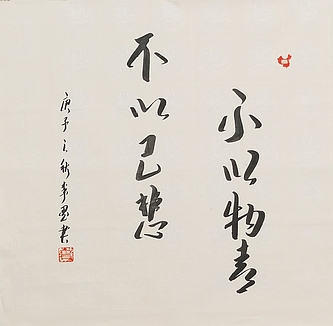 不以物喜
不以己悲
庚子之秋书